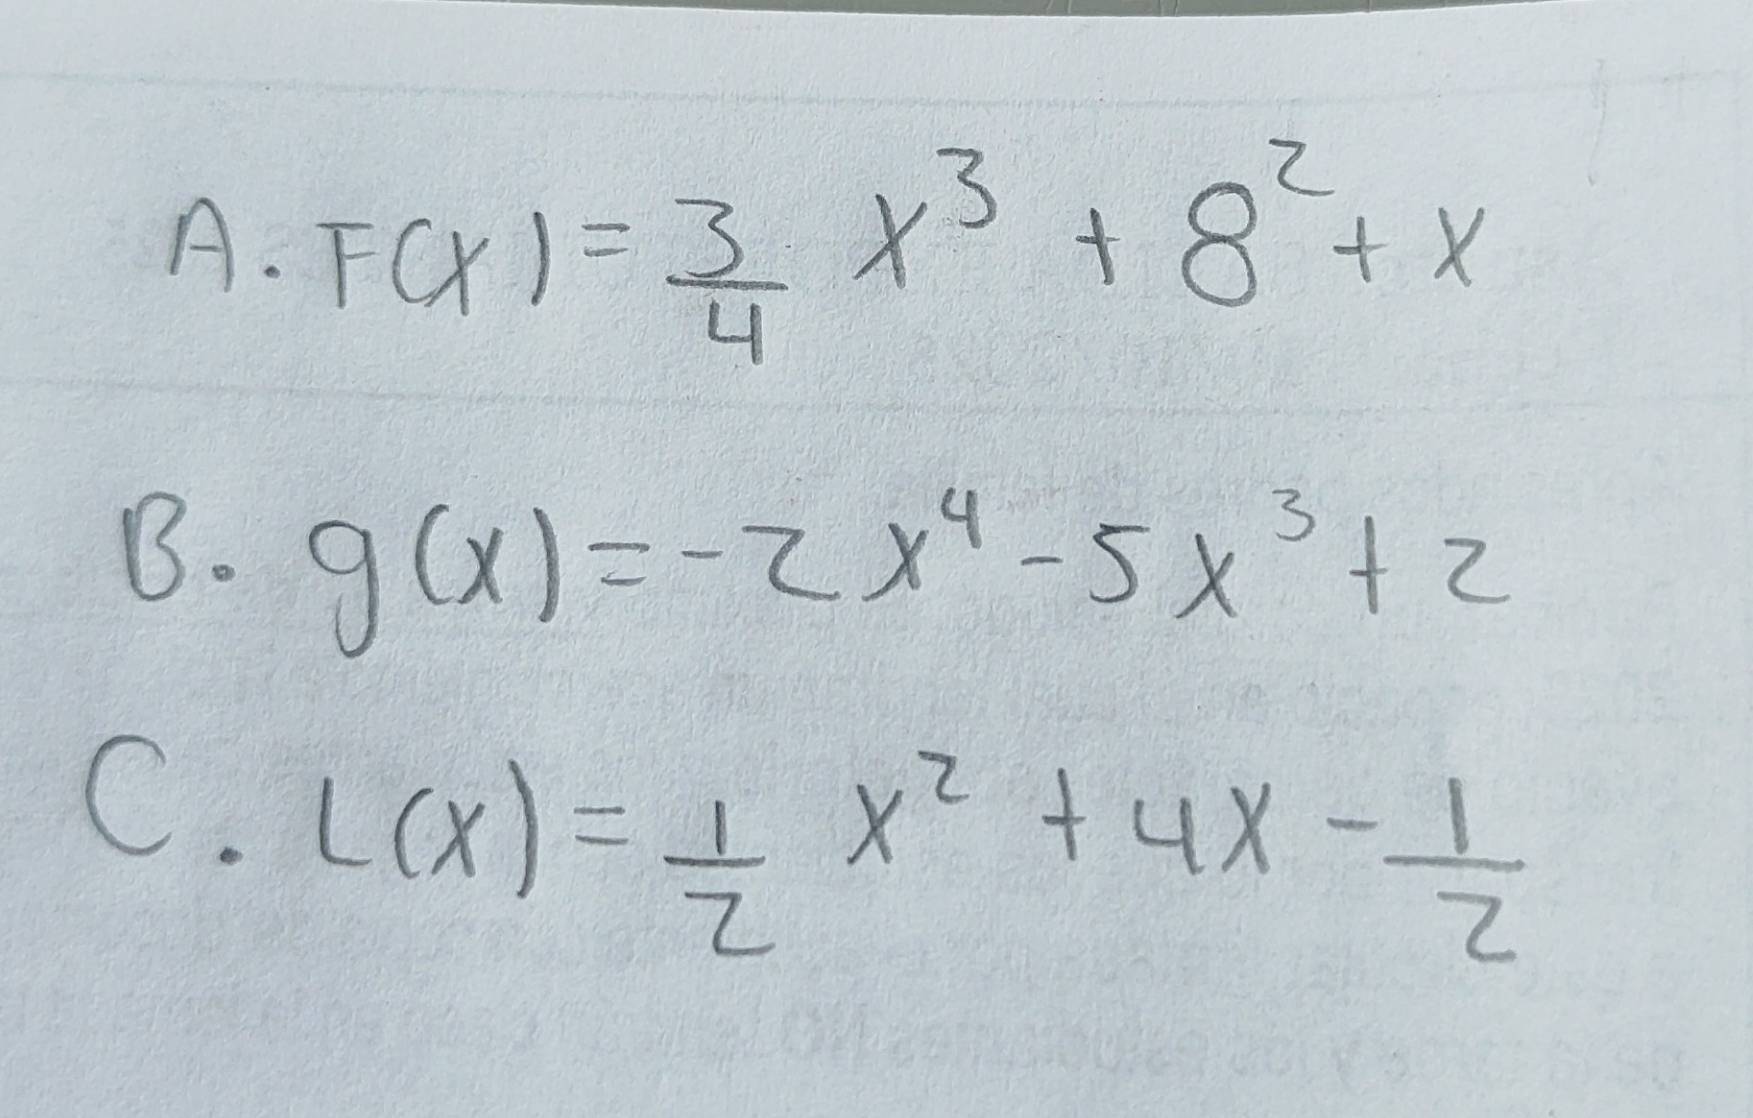 A. F(x) = 3/4 x³ + 8² + x
B. g(x) = -2x⁴ - 5x³ + 2
C. L(x) = 1/2 x² + 4x - 1/2